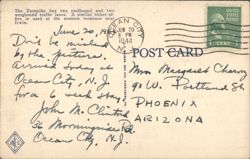 The Turnpike has two eastbound and two
westbound traffic lanes. A similar
is used at the western
June 20, 1944
Don't be misled
by the picture.
Arrived today at
Ocean City, N.J.
for a 6 week stay.
John McClintock
36 Morningside Rd.
Ocean City, N.J.
OCEAN CITY
JUN 20
PM
1944
N.J.
1 CENT 1
POST CARD
Miss Margaret
90 W. Portland St.
PHOENIX
ARIZONA